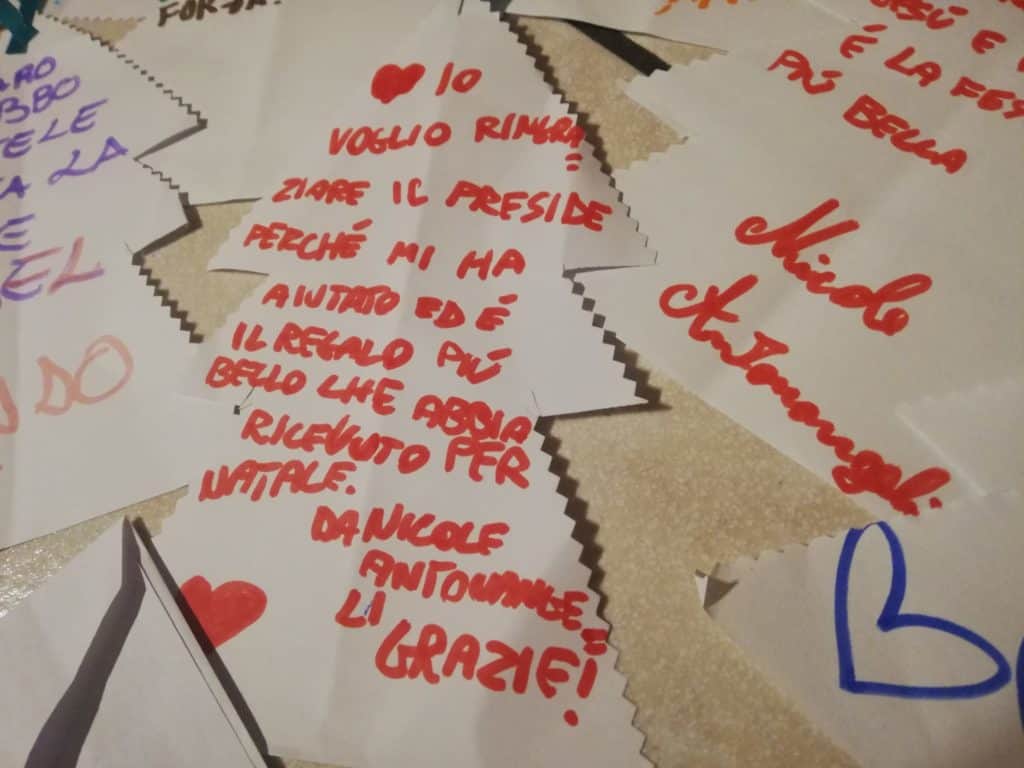 IO
VOGLIO RINGRA=
ZIARE IL PRESIDE
PERCHÉ MI HA
AIUTATO ED É
IL REGALO PIÚ
BELLO CHE ABBIA
RICEVUTO PER
NATALE.
DA NICOLE
ANTONANGE=
LI
GRAZIE!
ARO
BBO
TELE
LA
E
EL
É LA FES
PIÚ BELLA
Nicole
Antonangeli.